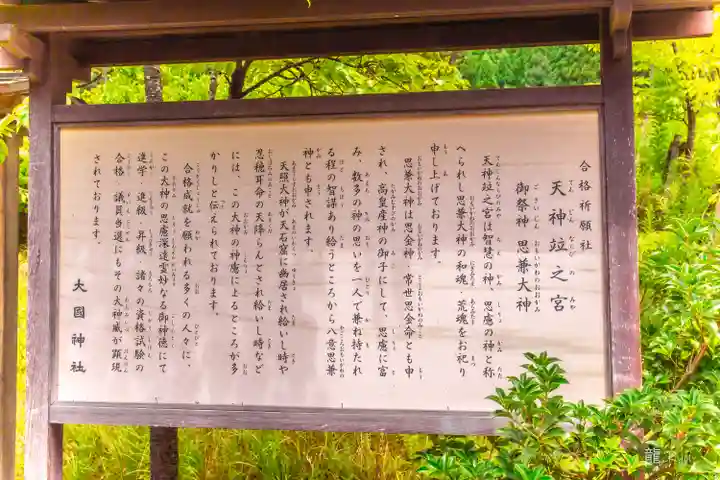 合格祈願社
天神竝之宮
御祭神 思兼大神
天神竝之宮は智慧の神 思慮の神と称
へられし思兼大神の和魂、荒魂をお祀り
申し上げております。
思兼大神は思金神 常世思金命とも申
され、高皇産神の御子にして、思慮に富
み、数多の神の思いを一人で兼ね持たれ
る程の智謀あり給うところから八意思兼
神とも申されます。
天照大神が天石窟に幽居され給いし時や
忍穂耳命の天降らんとされ給いし時など
には、この大神の神慮によるところが多
かりしと伝えられております。
合格成就を願われる多くの人々に、
この大神の思慮深遠霊妙なる御神徳にて
進学 進級 昇級 諸々の資格試験の
合格 議員当選にもその大神威が顕現
されております。
大國神社
龍